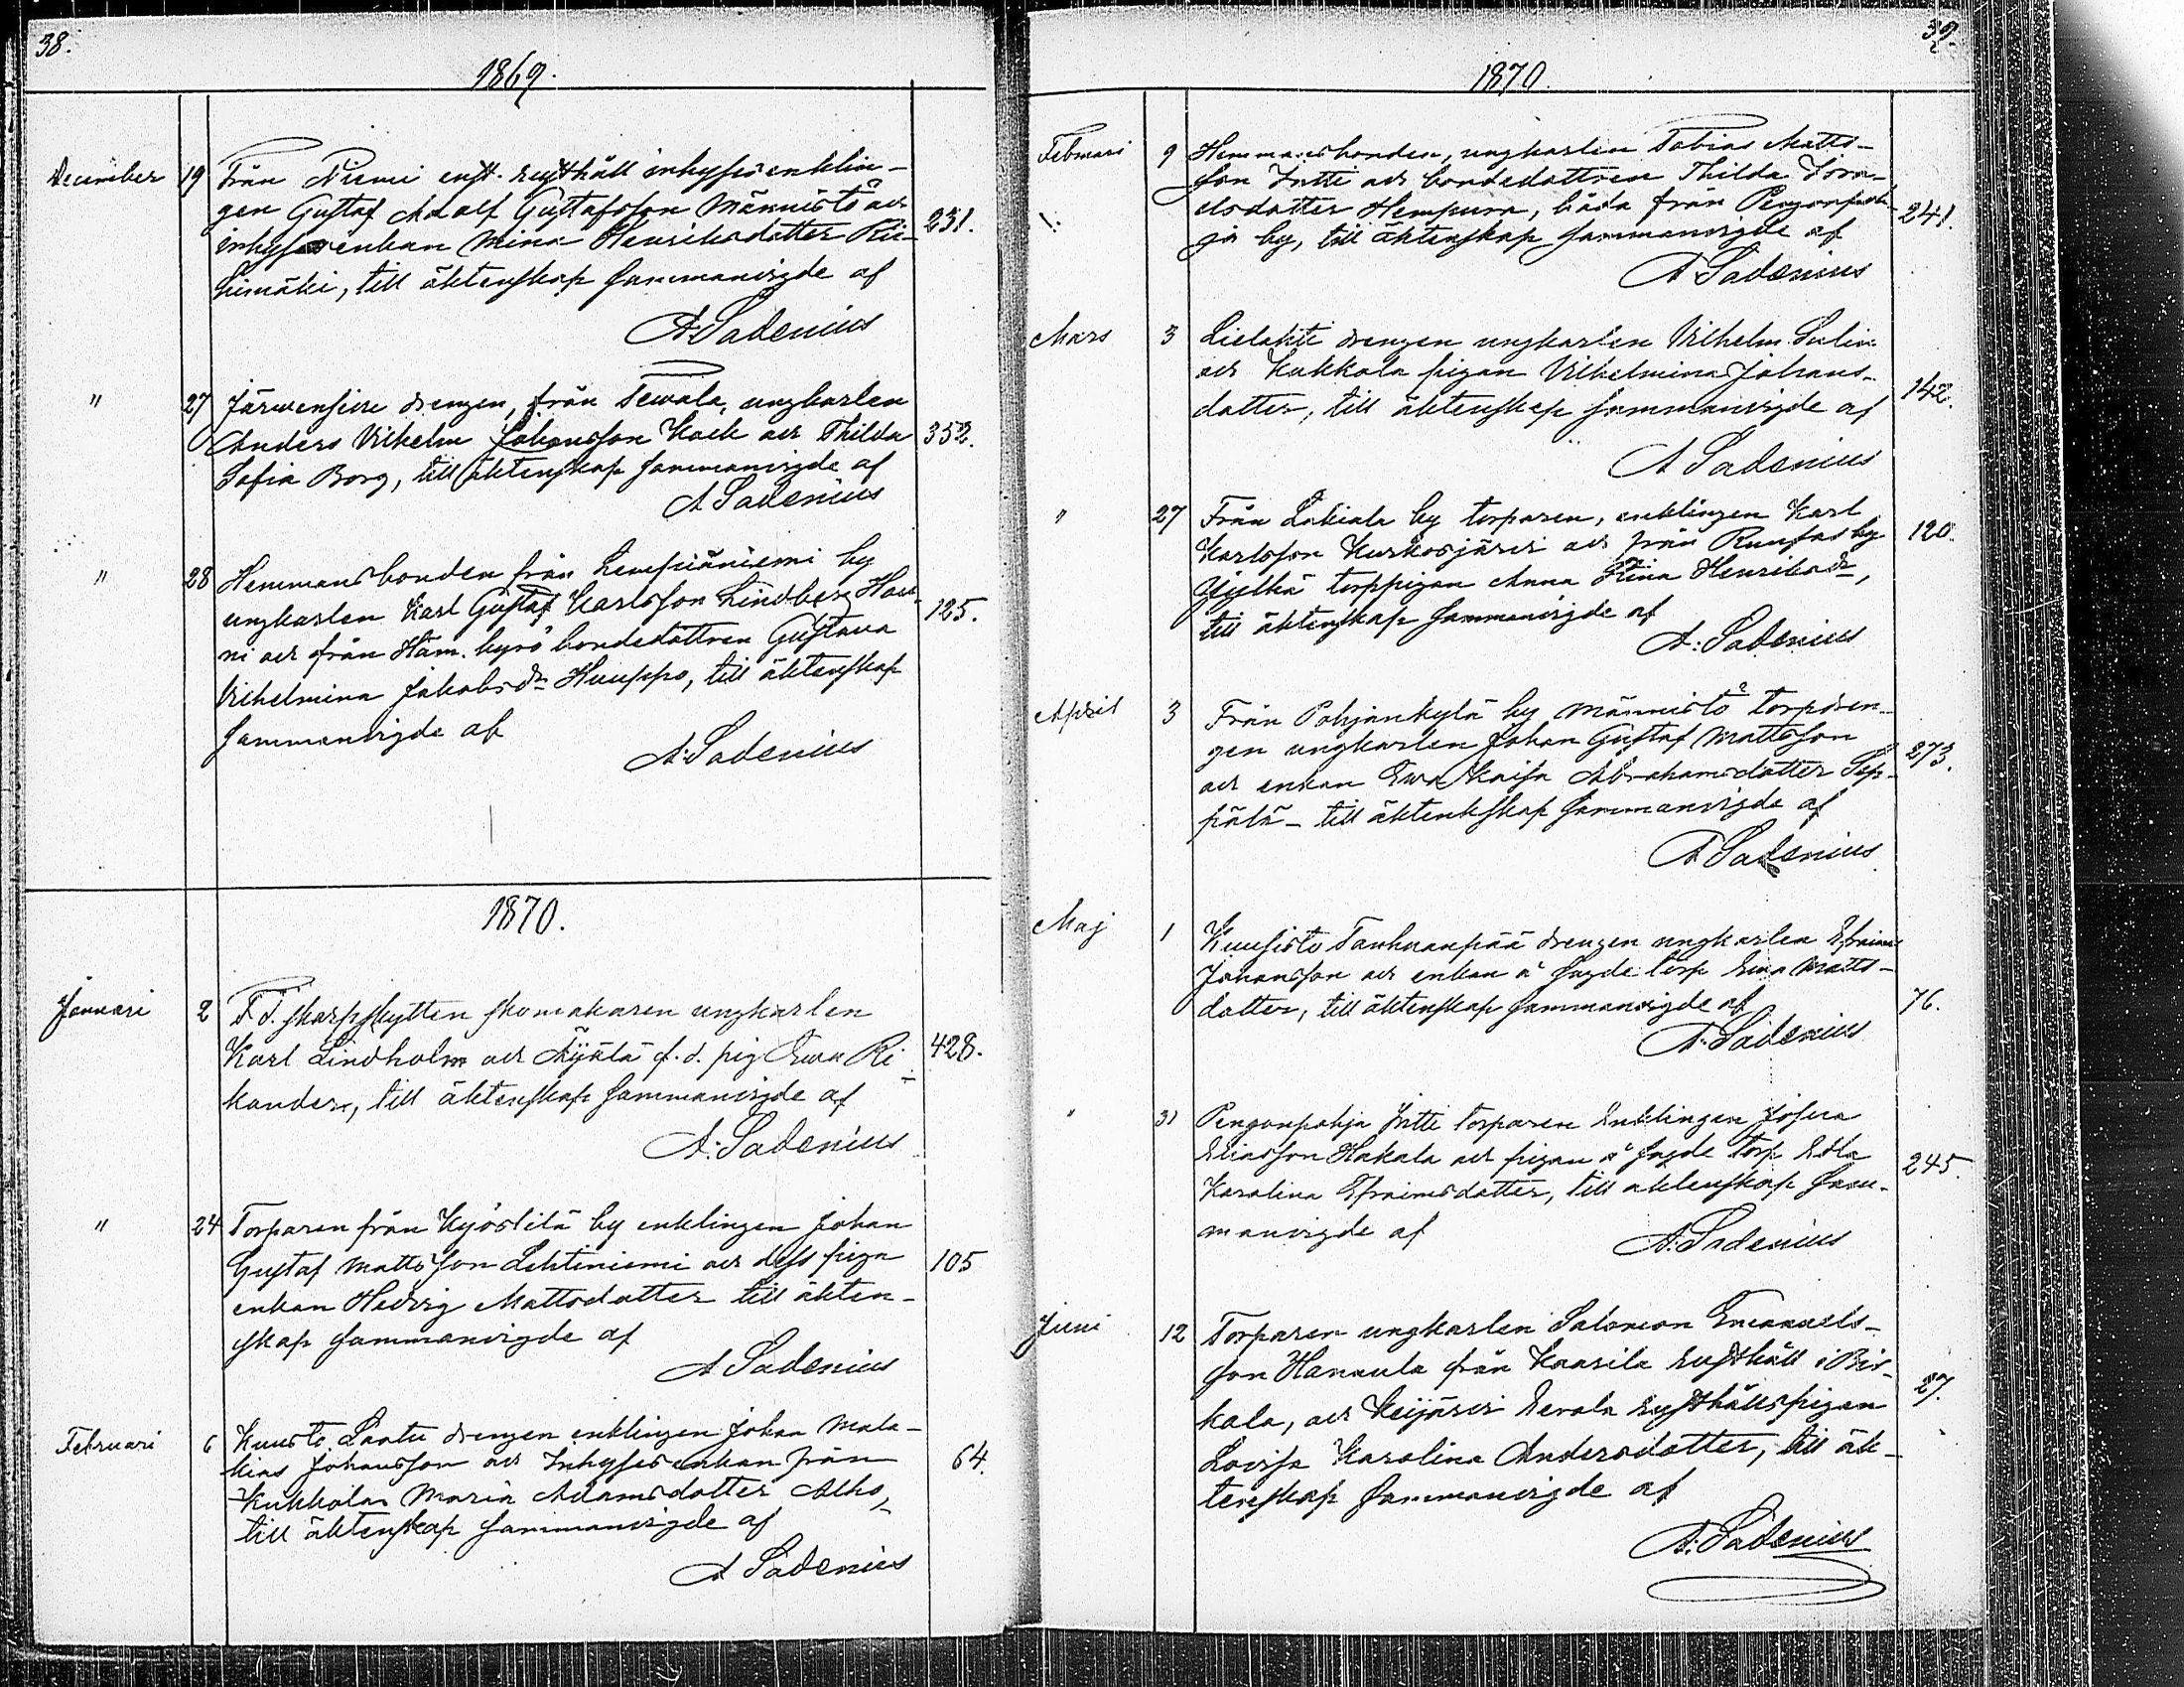 38.
1869.
December 19 Från Niemi enst. rusthåll inhyses enklin-
gen Gustaf Adolf Gustafsson Männistö och
inhyses enkan Mina Henriksdotter Rii- 231.
himäki, till äktenskap sammanvigde af
A. Sadenius
" 27 Järvensivu drengen, från Tevala, ungkarlen
Anders Vilhelm Johansson Kock och Thilda 352.
Sofia Borg, till äktenskap sammanvigde af
A Sadenius
" 28 Hemmansbonden från Lempiäniemi by
ungkarlen Karl Gustaf Karlsson Lindberg Hau- 125.
ni och från Ham. kyrö bondedottren Gustava
Vilhelmina Jakobsdr Huuppo, till äktenskap
sammanvigde af
A. Sadenius
1870.
Januari 2 F. d. skarpskytten skomakaren ungkarlen
Karl Lindholm och f. d. pig Ewa Ri- 428.
kander, till äktenskap sammanvigde af
A. Sadenius
" 24 Torparen från Kyöstilä by enklingen Johan
Gustaf Mattsson Lehtiniemi och dess piga 105
enkan Hedvig Mattsdotter till äkten-
skap sammanvigde af
A Sadenius
Februari 6 Kuusto Laatu drengen enklingen Johan Mala-
kias Johansson och Inhyses enkan från 64.
Kukkola Maria Adamsdotter Alho,
till äktenskap sammanvigde af
A Sadenius
39.
1870.
Februari 9 Hemmansbonden, ungkarlen Tobias Matts-
son Jutti och bondedottren Thilda Isra-
elsdotter Hempura, båda från Pengonpoh- 241.
ja by, till äktenskap sammanvigde af
A Sadenius
Mars 3 Lielahti drengen ungkarlen Vilhelm Sulin
och Kukkola pigan Vilhelmina Johans- 142.
dotter, till äktenskap sammanvigde af
A Sadenius
" 27 Från Lakiala by torparen, enklingen Karl 120.
Karlsson Kurkosjärvi och från Runfas by
torppigan Anna Stina Henriksdr,
till äktenskap sammanvigde af
A. Sadenius
April 3 Från Pohjankylä by Männistö torpdren-
gen ungkarlen Johan Gustaf Mattsson
och enkan Ewa Kaisa Abrahamsdotter Sep- 273.
pälä - till äktenkskap sammanvigde af
A Sadenius
Maj 1 Kuusisto Tanhuanpää drengen ungkarlen Efraim
Johansson och enkan å sagde torp Ewa Matts-
dotter, till äktenskap sammanvigde af 76.
A. Sadenius
" 31 Pengonpohja Jutti torparen Enklingen Josua
Eliasson Hakala och pigan å sagde torp Edla 245
Karolina Efraimsdotter, till äktenskap sam-
manvigde af
A. Sadenius
Juni 12 Torparen ungkarlen Salomon Emanuels-
son Hannula från Kaarila rusthåll i Bir- 27.
kala, och Keijärvi Eerola rusthållspigan
Lovisa Karolina Andersdotter, till äk-
tenskap sammanvigde af
A. Sadenius